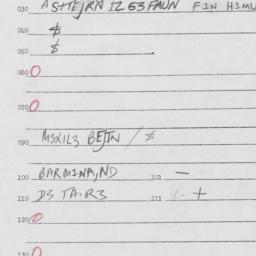 030 ASTTEJRN IZ 63 FAUN FIN HIMU
040 $
050 $
060 O
070 O
090 M3XIL3 BEJTN / $
100 BARMINA,ND 101 —
110 D3 TA.R3 111 +
120 O
130 O